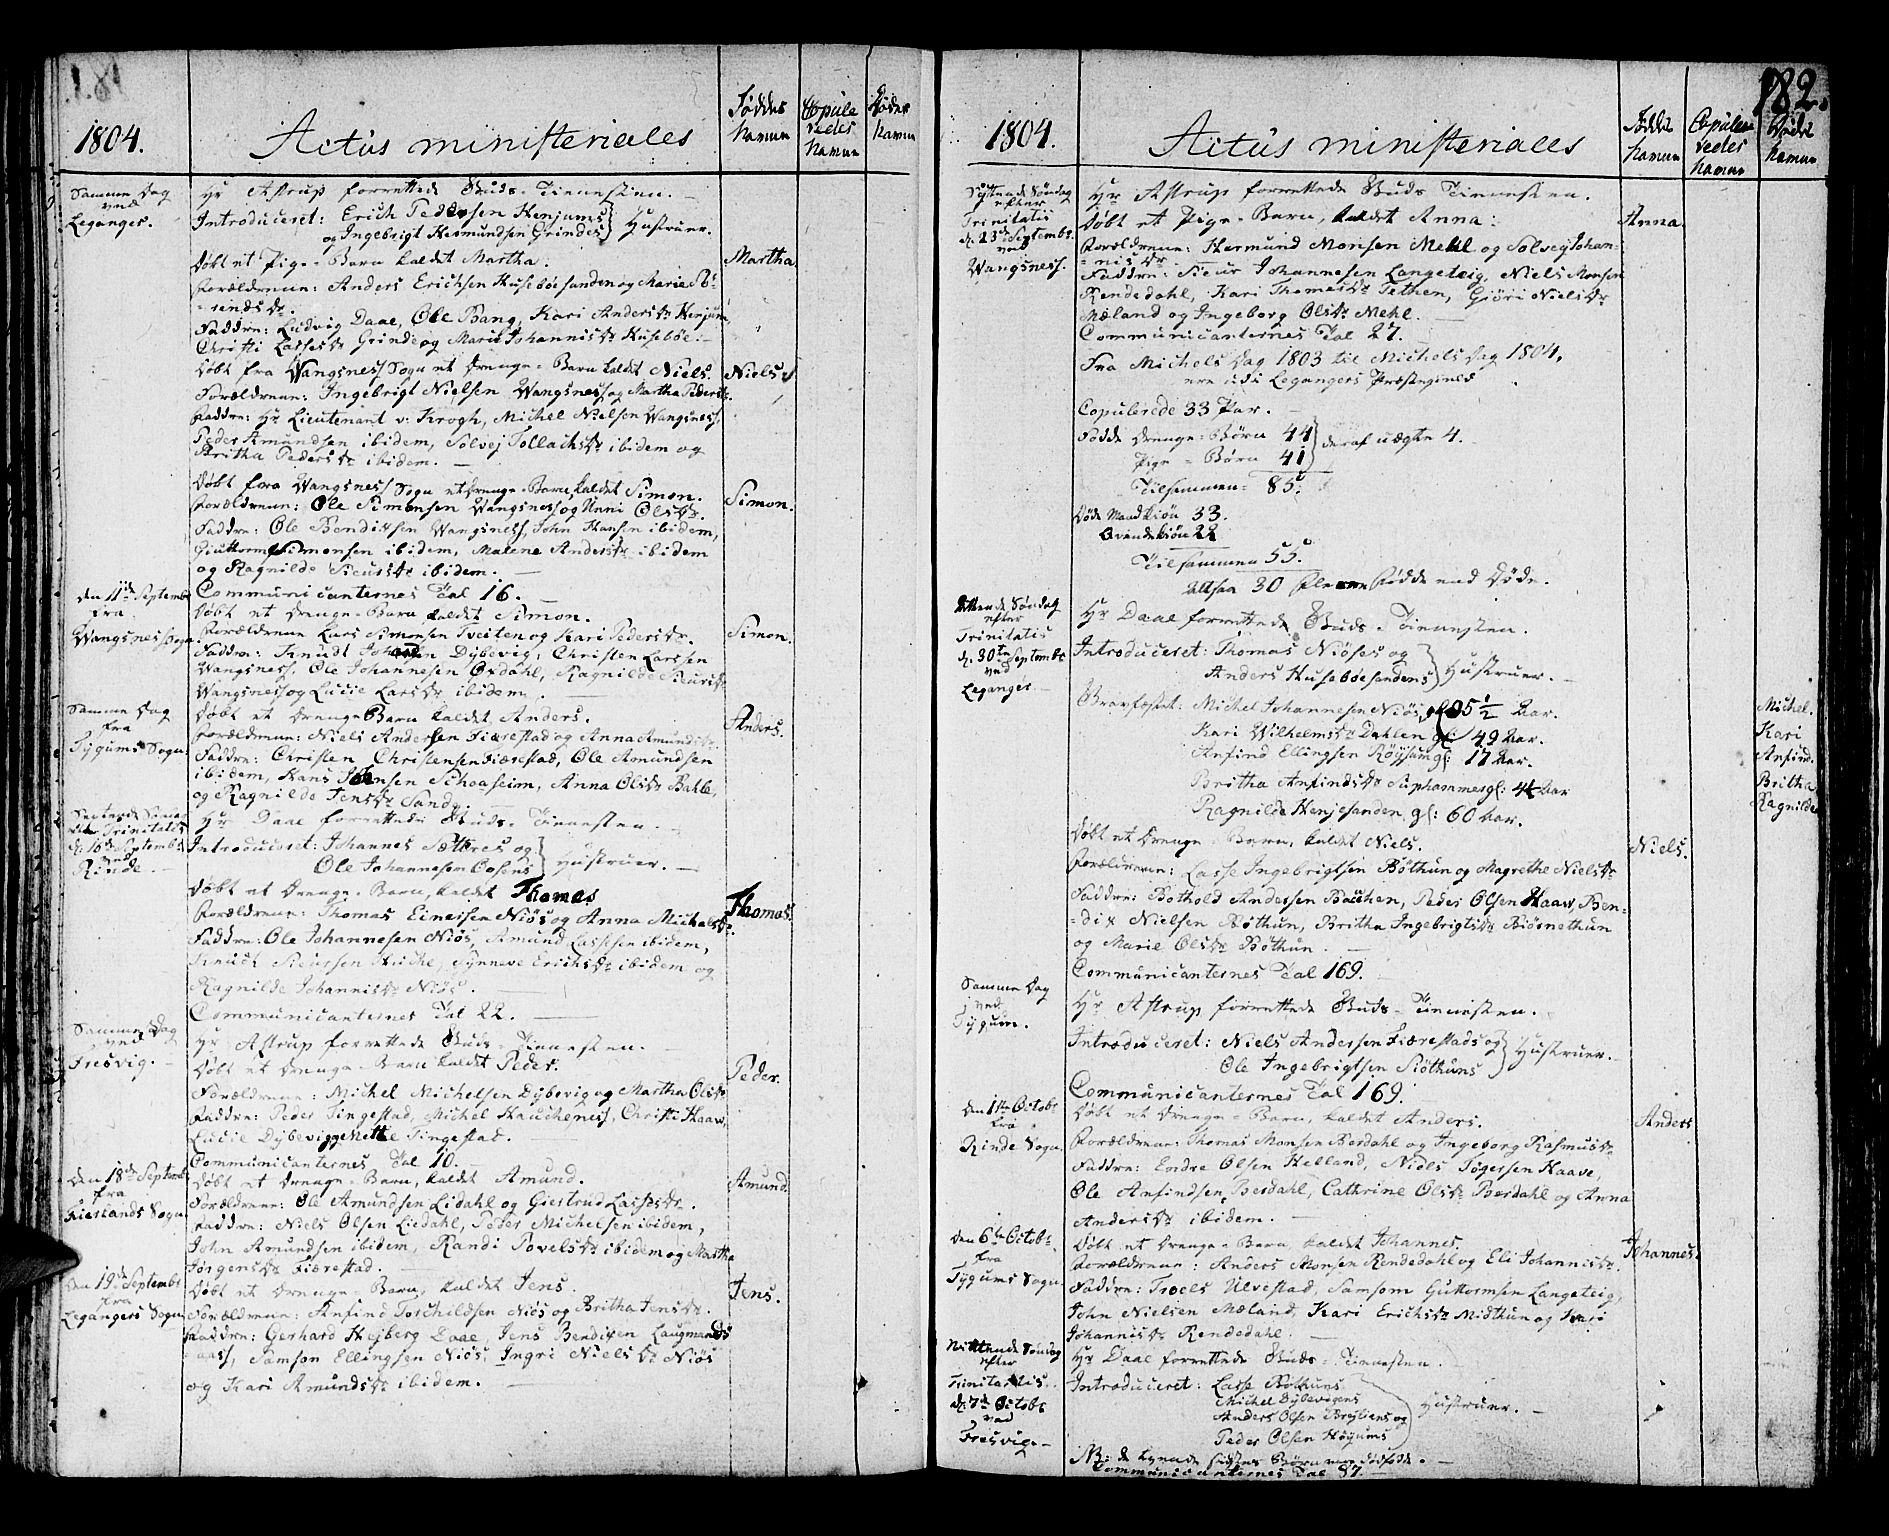 181.
1804.
Actus ministeriales
Føddes Navne
Copule redes Navne
Dødes Navne
Samme Dag
ved
Leganger.
Hr Astrup forrettede Guds-Tienesten.
Introduceret: Erich Pedersen Henjums
og Ingebrigt Hermundsen Grindes Hustruer.
Døbt et Pige-Barn kaldet Martha.
Martha
Forældrene: Anders Erichsen Husebøesanden og Marie Sø-
-rensdr.
Faddre: Ludvig Daae, Ole Bang, Kari Andersdr Henjum,
Christi Lassesdr Grinde og Marie Johannisdr Husebøe.
Døbt fra Wangsness Sogn et Drenge-Barn kaldet Niels.
Niels
Forældrene: Ingebrigt Nielsen Wangsness og Martha Pedersdr.
Faddre: Hr Lieutenant v: Krogh, Michel Nielsen Wangsness,
Peder Amundsen ibidem, Solvej Tollachsdr ibidem og
Britha Pedersdr ibidem.
Døbt fra Wangsness Sogn et Drenge-Barn, kaldet Simon.
Simon.
Forældrene: Ole Simonsen Wangsness og Unni Olsdr.
Faddre: Ole Bendixsen Wangsness, John Hansen ibidem,
Guttorm Simonsen ibidem, Malene Andersdr ibidem
og Ragnilde Sieursdr ibidem.
Communicanternes Tal 16.
Den 11te Septembr
fra
Wangsness Sogn.
Døbt et Drenge-Barn, kaldet Simon.
Simon.
Forældrene Lars Simonsen Tveiten og Kari Pedersdr.
Faddre: Knudt Dybevig, Christen Larssen
Wangsness, Ole Johannesen Oxdahl, Ragnilde Sieursdr
Wangsness og Lucie Larsdr ibidem.
Samme Dag
fra
Tygums Sogn.
Døbt et Drenge Barn kaldet Anders.
Anders.
Forældrene: Niels Andersen Fiærestad og Anna Amundsdr.
Faddre: Christen Christensen Fiærestad, Ole Amundsen
ibidem, Hans Schoaseim, Anna Olsdr Bahle,
og Ragnilde Jensdr Sande.
Trinitatis
d: 16de Septembr
ved
Rinde.
Hr Daae forrettede Guds-Tienesten.
Introduceret: Johannes Sættres og
Ole Johannesøn Hustruer.
Døbt et Drenge-Barn, kaldet Thomas
Thomas.
Forældrene: Thomas Einersen Niøs og Anna Michelsdr.
Faddre: Ole Johannesen Niøs, Amund Lassesen ibidem,
Knud Sieursen, Synneve Erichsdr ibidem og
Ragnilde Johannisdr Niøs.
Communicanternes Tal 22.
Samme Dag
ved
Fresvig.
Hr Astrup forrettede Guds-Tienesten.
Døbt et Drenge-Barn kaldet Peder.
Peder.
Forældrene: Michel Michelsen Dybevig og Martha Olsdr
Faddre: Peder Tingestad, Michel Hauchenes, Christi Haave,
Lucie Dybevig og Mette Tingestad.
Communicanternes Tal 10.
Den 18de Septembr
fra
Fierlands Sogn
Døbt et Drenge-Barn, kaldet Amund.
Amund.
Forældrene: Ole Amundsen Lidahl og Giertrud Lassesdr.
Faddre: Niels Olsen Liedahl, Peder Michelsen ibidem,
John Amundsen ibidem, Randi Povelsdr ibidem og Martha
Jørgensdr Fiærestad.
Den 19de Septembr
fra
Legangers Sogn
Døbt et Drenge-Barn, kaldet Jens.
Jens.
Forældrene: Anfind Torchildsen Niøs og Britha Jensdr.
Faddre: Gerhard Hejberg Daae, Jens Bendixen Laugmands
aass, Samson Ellingsen Niøs, Ingri Nielsdr Niøs
og Kari Amundsdr ibidem.
182.
1804.
Actus ministeriales
Føddes Navne
Copule redes Navne
Dødes Navne
Syttende Søndag
efter
Trinitatis
d. 23de Septembr.
ved
Wangsness.
Hr Astrup forrettede Guds Tienesten.
Døbt et Pige-Barn, kaldet Anna:
Anna
Forældrene: Hermund Monsen Mehl og Solveg Johan-
-nisdr
Faddre: Sieur Johannesen Langeteig, Niels Monsen
Rendedahl, Kari Thomasdr Tethen, Giöri Nielsdr
Mæland og Ingeborg Olsdr Mehl.
Communicanternes Tal 27.
Fra Michels Dag 1803 til Michels Dag 1804,
ere udi Legangers Præstegield
Copulerede 33 Par.
Fødde Drenge-Børn 44
Pige-Børn 41 deraf uægte 4.
Tilsammen 85.
Døde Mandkiøn 33.
Qvindekiøn 22
Tilsammen 55.
Altsaa 30 fleere Fødde end Døde.
Attende Søndag
efter
Trinitatis
d. 30te Septembr
ved
Leganger
Hr Daae forrettede Guds-Tienesten.
Introduceret: Thomas Niøses og
Anders Husebøesandens Hustruer.
Gravfæstet: Michel Johannesen Niøs, 5 1/2 Aar.
Michel.
Kari Wilhelmsdr Dahlen gl: 49 Aar.
Kari
Anfind Ellingsen Røysum gl: 17 Aar.
Anfind.
Britha Anfindsdr Suphammer gl: Aar
Britha
Ragnilde Henjesanden, gl: 60 Aar.
Ragnilde
Døbt et Drenge-Barn, kaldet Niels.
Niels.
Forældrene: Lasse Ingebrigtsen Bøthun og Magrethe Nielsdr
Faddre: Bothold Andersen Bauhen, Peder Olsen Haave, Ben-
-dix Nielsen Bøthun, Britha Ingebrigtsdr Biønnethun
og Marie Olsdr Bøthun.
Communicanternes Tal 169.
Samme Dag
ved
Tygum.
Hr Astrup forrettede Guds-Tienesten.
Introduceret: Niels Andersen Fiærestads og
Ole Ingebrigtsen Siøthuns Hustruer.
Communicanternes Tal 169.
Den 1ste Octobr
fra
Rinde Sogn
Døbt et Drenge-Barn, kaldet Anders.
Anders
Forældrene: Thomas Monsen Berdahl og Ingeborg Rasmusdr
Faddre: Endre Olsen Helland, Niels Iøgersen Haave,
Ole Anfindsen Berdahl, Cathrine Olsdr Berdahl og Anna
Andersdr ibidem.
Den 6te Octobr.
fra
Tygums Sogn.
Døbt et Drenge-Barn, kaldet Johannes.
Johannes.
Forældrene: Anders Monsen Rendedahl og Eli Johannisdr.
Faddre: Troels Ulvestad, Samsom Guttormsen Langeteig,
John Nielsen Mæland, Kari Erichsdr Midthun og Kari
Johannisdr Rendedahl.
Nittende Søndag
efter
Trinitatis.
d: 7de Octobr
ved
Fresvig.
Hr Daae forrettede Guds-Tienesten.
Introduceret: Lasse Bøthuns
Michel Dybevigens
Anders Olsen og
Peder Olsen Høyums Hustruer.
NB: de tvende sidstes Børn vare dødfødte.
Communicanternes Tal 87